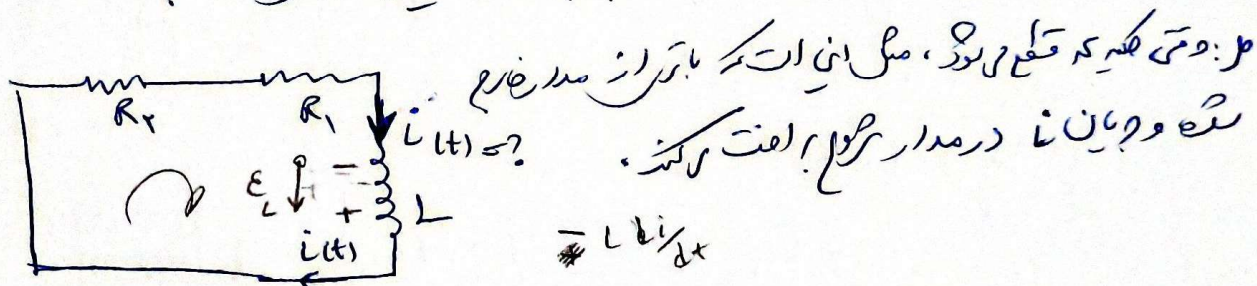 حل: وقتی کلید قطع می‌شود، مثل این است که باتری از مدار خارج
شده و جریان i در مدار شروع به افت می‌کند.
R₂ R₁ i(t)=?
ε_L − + L
i(t)
− L di/dt